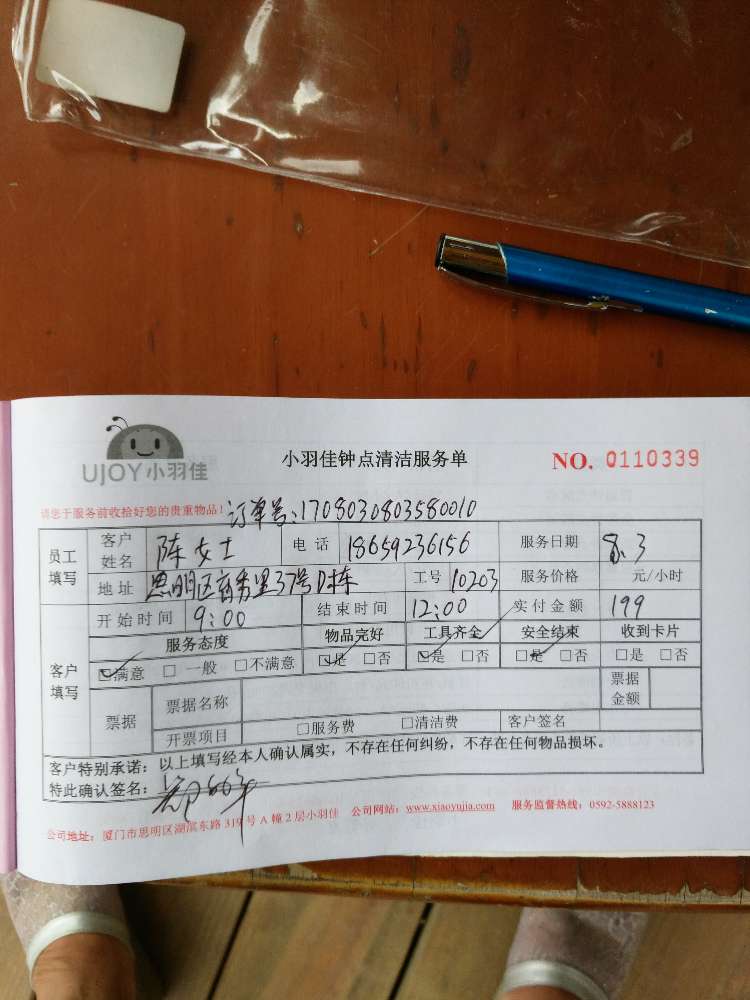 UJOY小羽佳
小羽佳钟点清洁服务单
NO. 0110339
请您于服务前收拾好您的贵重物品！ 订单号:1708030803580010
员工填写 客户姓名 陈女士 电话 18659236156 服务日期 8.3
地址 思明区商秀里37号D栋 工号 10203 服务价格 元/小时
开始时间 9:00 结束时间 12:00 实付金额 199
客户填写 服务态度 物品完好 工具齐全 安全结束 收到卡片
☑满意 □一般 □不满意 ☑是 □否 ☑是 □否 ☑是 □否 □是 □否
票据 票据名称 票据金额
开票项目 □服务费 □清洁费 客户签名
客户特别承诺：以上填写经本人确认属实，不存在任何纠纷，不存在任何物品损坏。
特此确认签名：
公司地址：厦门市思明区湖滨东路319号A幢2层小羽佳 公司网站：www.xiaoyujia.com 服务监督热线：0592-5888123